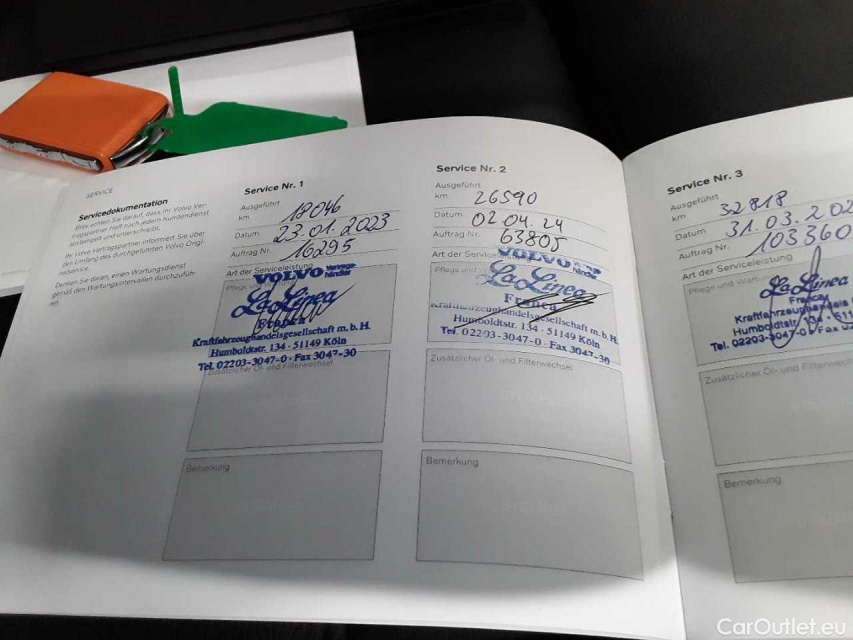 SERVICE
Servicedokumentation
Bitte achten Sie darauf, dass Ihr Volvo Ver-
tragspartner Heft nach jedem Kundendienst
abstempelt und unterschreibt.
Ihr Volvo Vertragspartner informiert Sie über
den Umfang des durchgeführten Volvo Origi-
nalservice.
Denken Sie daran, einen Wartungsdienst
gemäß den Wartungsintervallen durchzufüh-
ren.
Service Nr. 1
Ausgeführt
km 18046
Datum 23.01.2023
Auftrag Nr. 16295
Art der Serviceleistung
VOLVO Vertrags-
händler
Pflege
La Linea
Franca
Kraftfahrzeughandelsgesellschaft m.b.H.
Humboldtstr. 134 · 51149 Köln
Tel. 02203-3047-0 · Fax 3047-30
Zusätzlicher Öl- und Filterwechsel
Bemerkung
Service Nr. 2
Ausgeführt
km 26590
Datum 02.04.24
Auftrag Nr. 63805
Art der Serviceleistung
VOLVO
händler
Pflege
La Linea
Franca
Kraftfahrzeughandelsgesellschaft m.b.H.
Humboldtstr. 134 · 51149 Köln
Tel. 02203-3047-0 · Fax 3047-30
Zusätzlicher Öl- und Filterwechsel
Bemerkung
Service Nr. 3
Ausgeführt
km 32818
Datum 31.03.202
Auftrag Nr. 103360
Art der Serviceleistung
Pflege und
La Linea
Franca
Kraftfahrzeughandels
Humboldtstr. 134 · 51
Tel. 02203-3047-0 · Fax 3
Zusätzlicher Öl- und Filterwechsel
Bemerkung
CarOutlet.eu